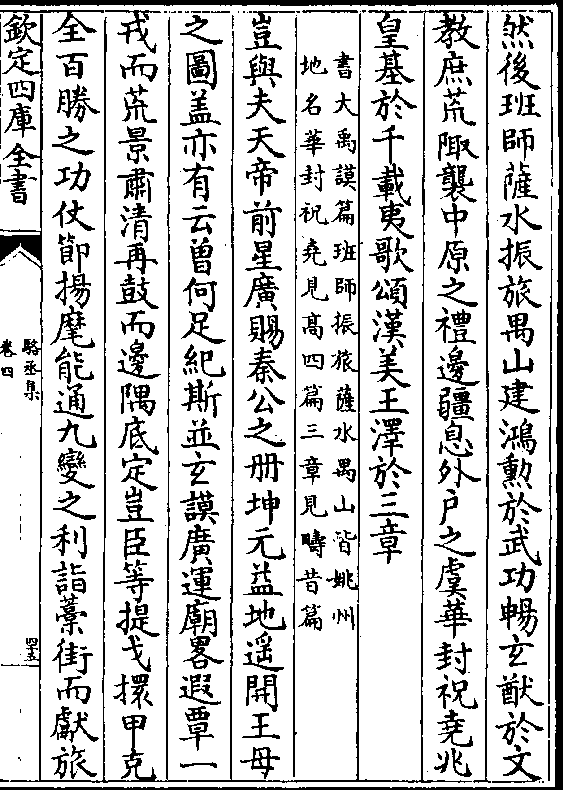 然後班師薩水振旅禺山建鴻勲於武功暢玄猷於文
教庶荒陬襲中原之禮邊疆息外户之虞華封祝堯兆
皇基於千載夷歌頌漢美王澤於三章
書大禹謨篇班師振旅薩水禺山皆姚州
地名華封祝堯見髙四篇三章見疇昔篇
豈與夫天帝前星廣賜秦公之册坤元益地遥開王母
之圖盖亦有云曽何足紀斯並玄謨廣運廟畧遐覃一
戎而荒景肅清再鼓而邊隅底定豈臣等提戈擐甲克
全百勝之功仗節揚麾能通九變之利詣藳街而獻旅
欽定四庫全書
駱丞集
卷四
四十五